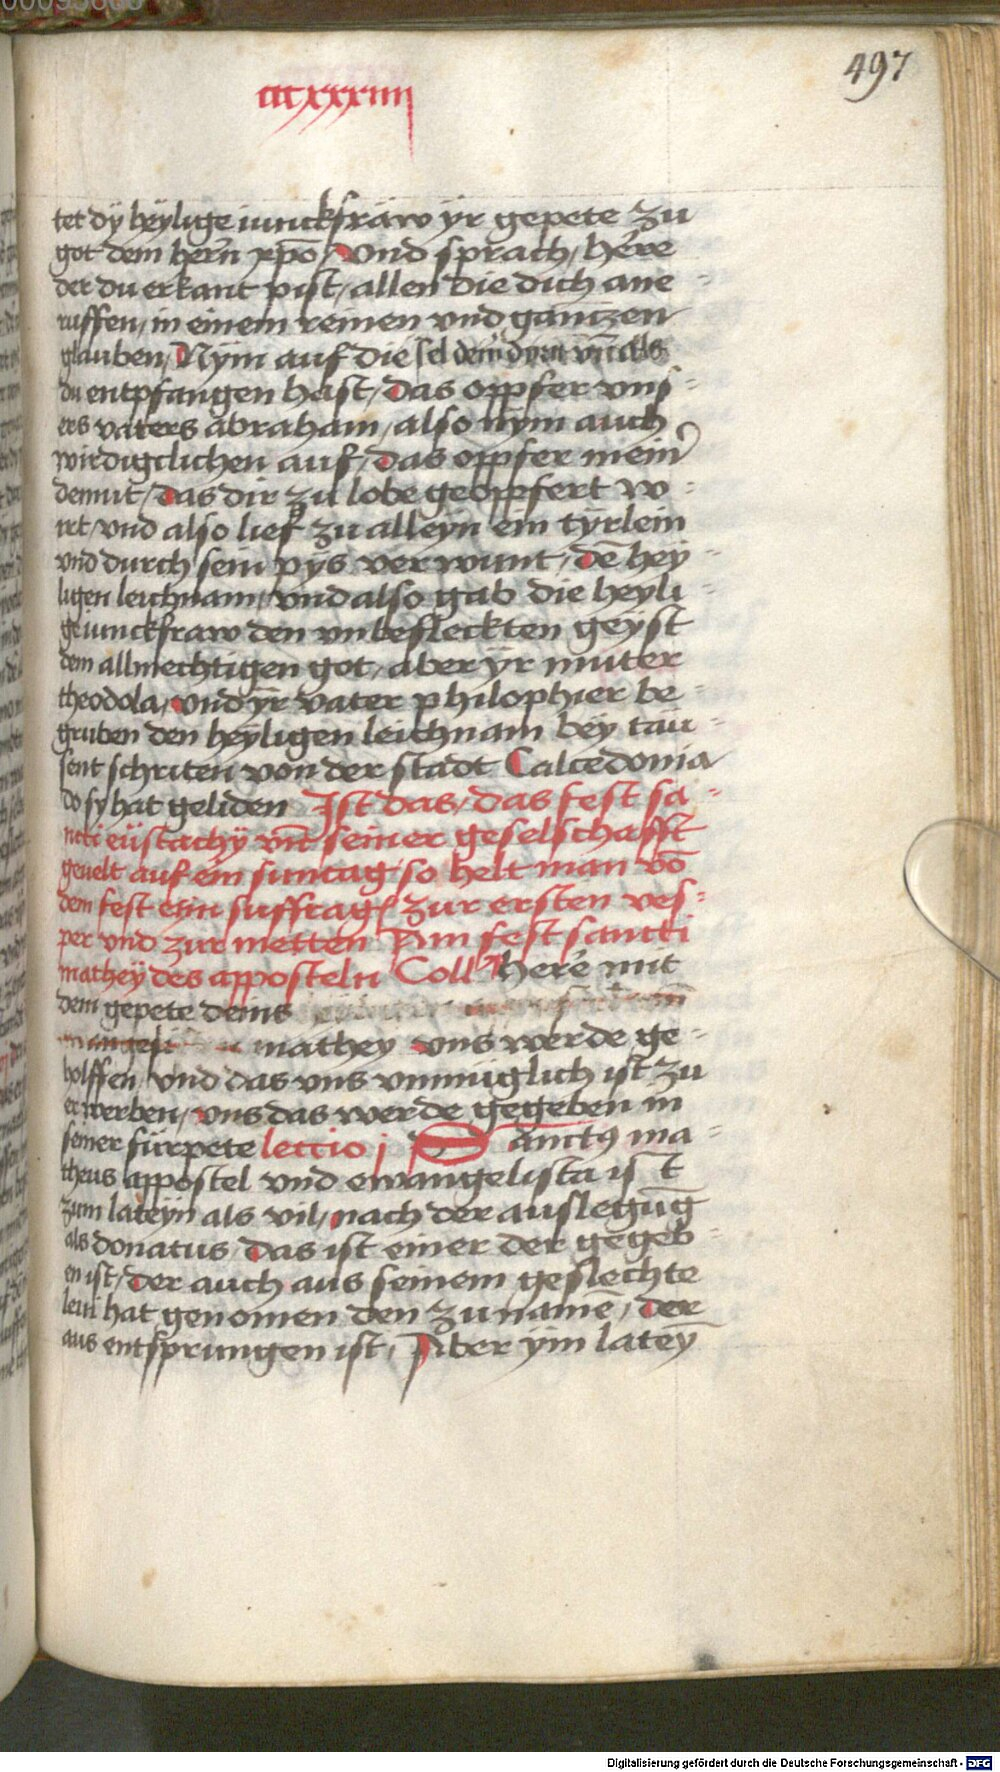 497
ccccxxxiiij
tet dÿ heÿlige iunckfraw ÿr gepete zu
got dem hern xpō / Vnd sprach / here
der du erkant pist / allen die dich ane
ruffen / in einem reinen vnd gantzen
glauben / Nÿm auf die sel
du entpfangen hast / das opffer vns-
ers vaters abraham / also nÿm auch
wirdigclichen auf / das opffer mein
demut / das dir zu lobe geopffert w-
irt / vnd also lief zu alleyn ein tÿrlein
vnd durch sein pÿs verwunt / dē hey-
ligen leichnam / vnd also gab die heyli-
ge iunckfraw den vnbefleckten geÿst
dem allmechtigen got / aber ÿr muter
theodola / vnd ÿr vater philophier be-
gruben den heÿligen leichnam bey tau-
sent schriten von der stadt Calcedonia
do sy hat geliden Ist das / das fest sa-
ncti eüstachÿ vnt seiner geselschafft
geuelt auf ein suntag / so helt man vō
dem fest eyn suffrag zur ersten ves-
per vnd zur metten Am fest sancti
mathey des apposteln Coll here mit
dem gepete deins
mathey vns werde ge-
holffen / vnd das vns vnmüglich ist zu
erwerben / vns das werde gegeben in
seiner fürpete lectio j Sanctus ma-
theus appostel vnd ewangelista ist
zum lateyn als vil / nach der auslegūg
als donatus / das ist einer der gegeb-
en ist / der auch aus seinem geslechte
leui hat genomen den zunamē / der
aus entsprungen ist / Aber ÿm lateȳ
Digitalisierung gefördert durch die Deutsche Forschungsgemeinschaft - DFG